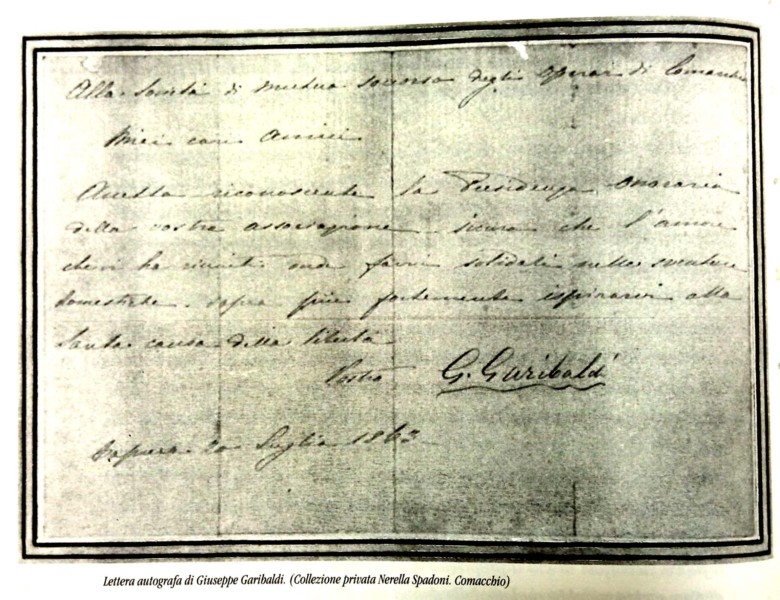 Alla Società di mutuo soccorso degli operai di Comacchio
Miei cari amici
Accetto riconoscente la Presidenza onoraria
della vostra associazione sicuro che l'amore
che vi ha riuniti onde farvi solidali nelle sventure
domestiche saprà più fortemente ispirarvi alla
Santa causa della libertà
Vostro G. Garibaldi
20 Luglio 1863
Lettera autografa di Giuseppe Garibaldi. (Collezione privata Nerella Spadoni. Comacchio)